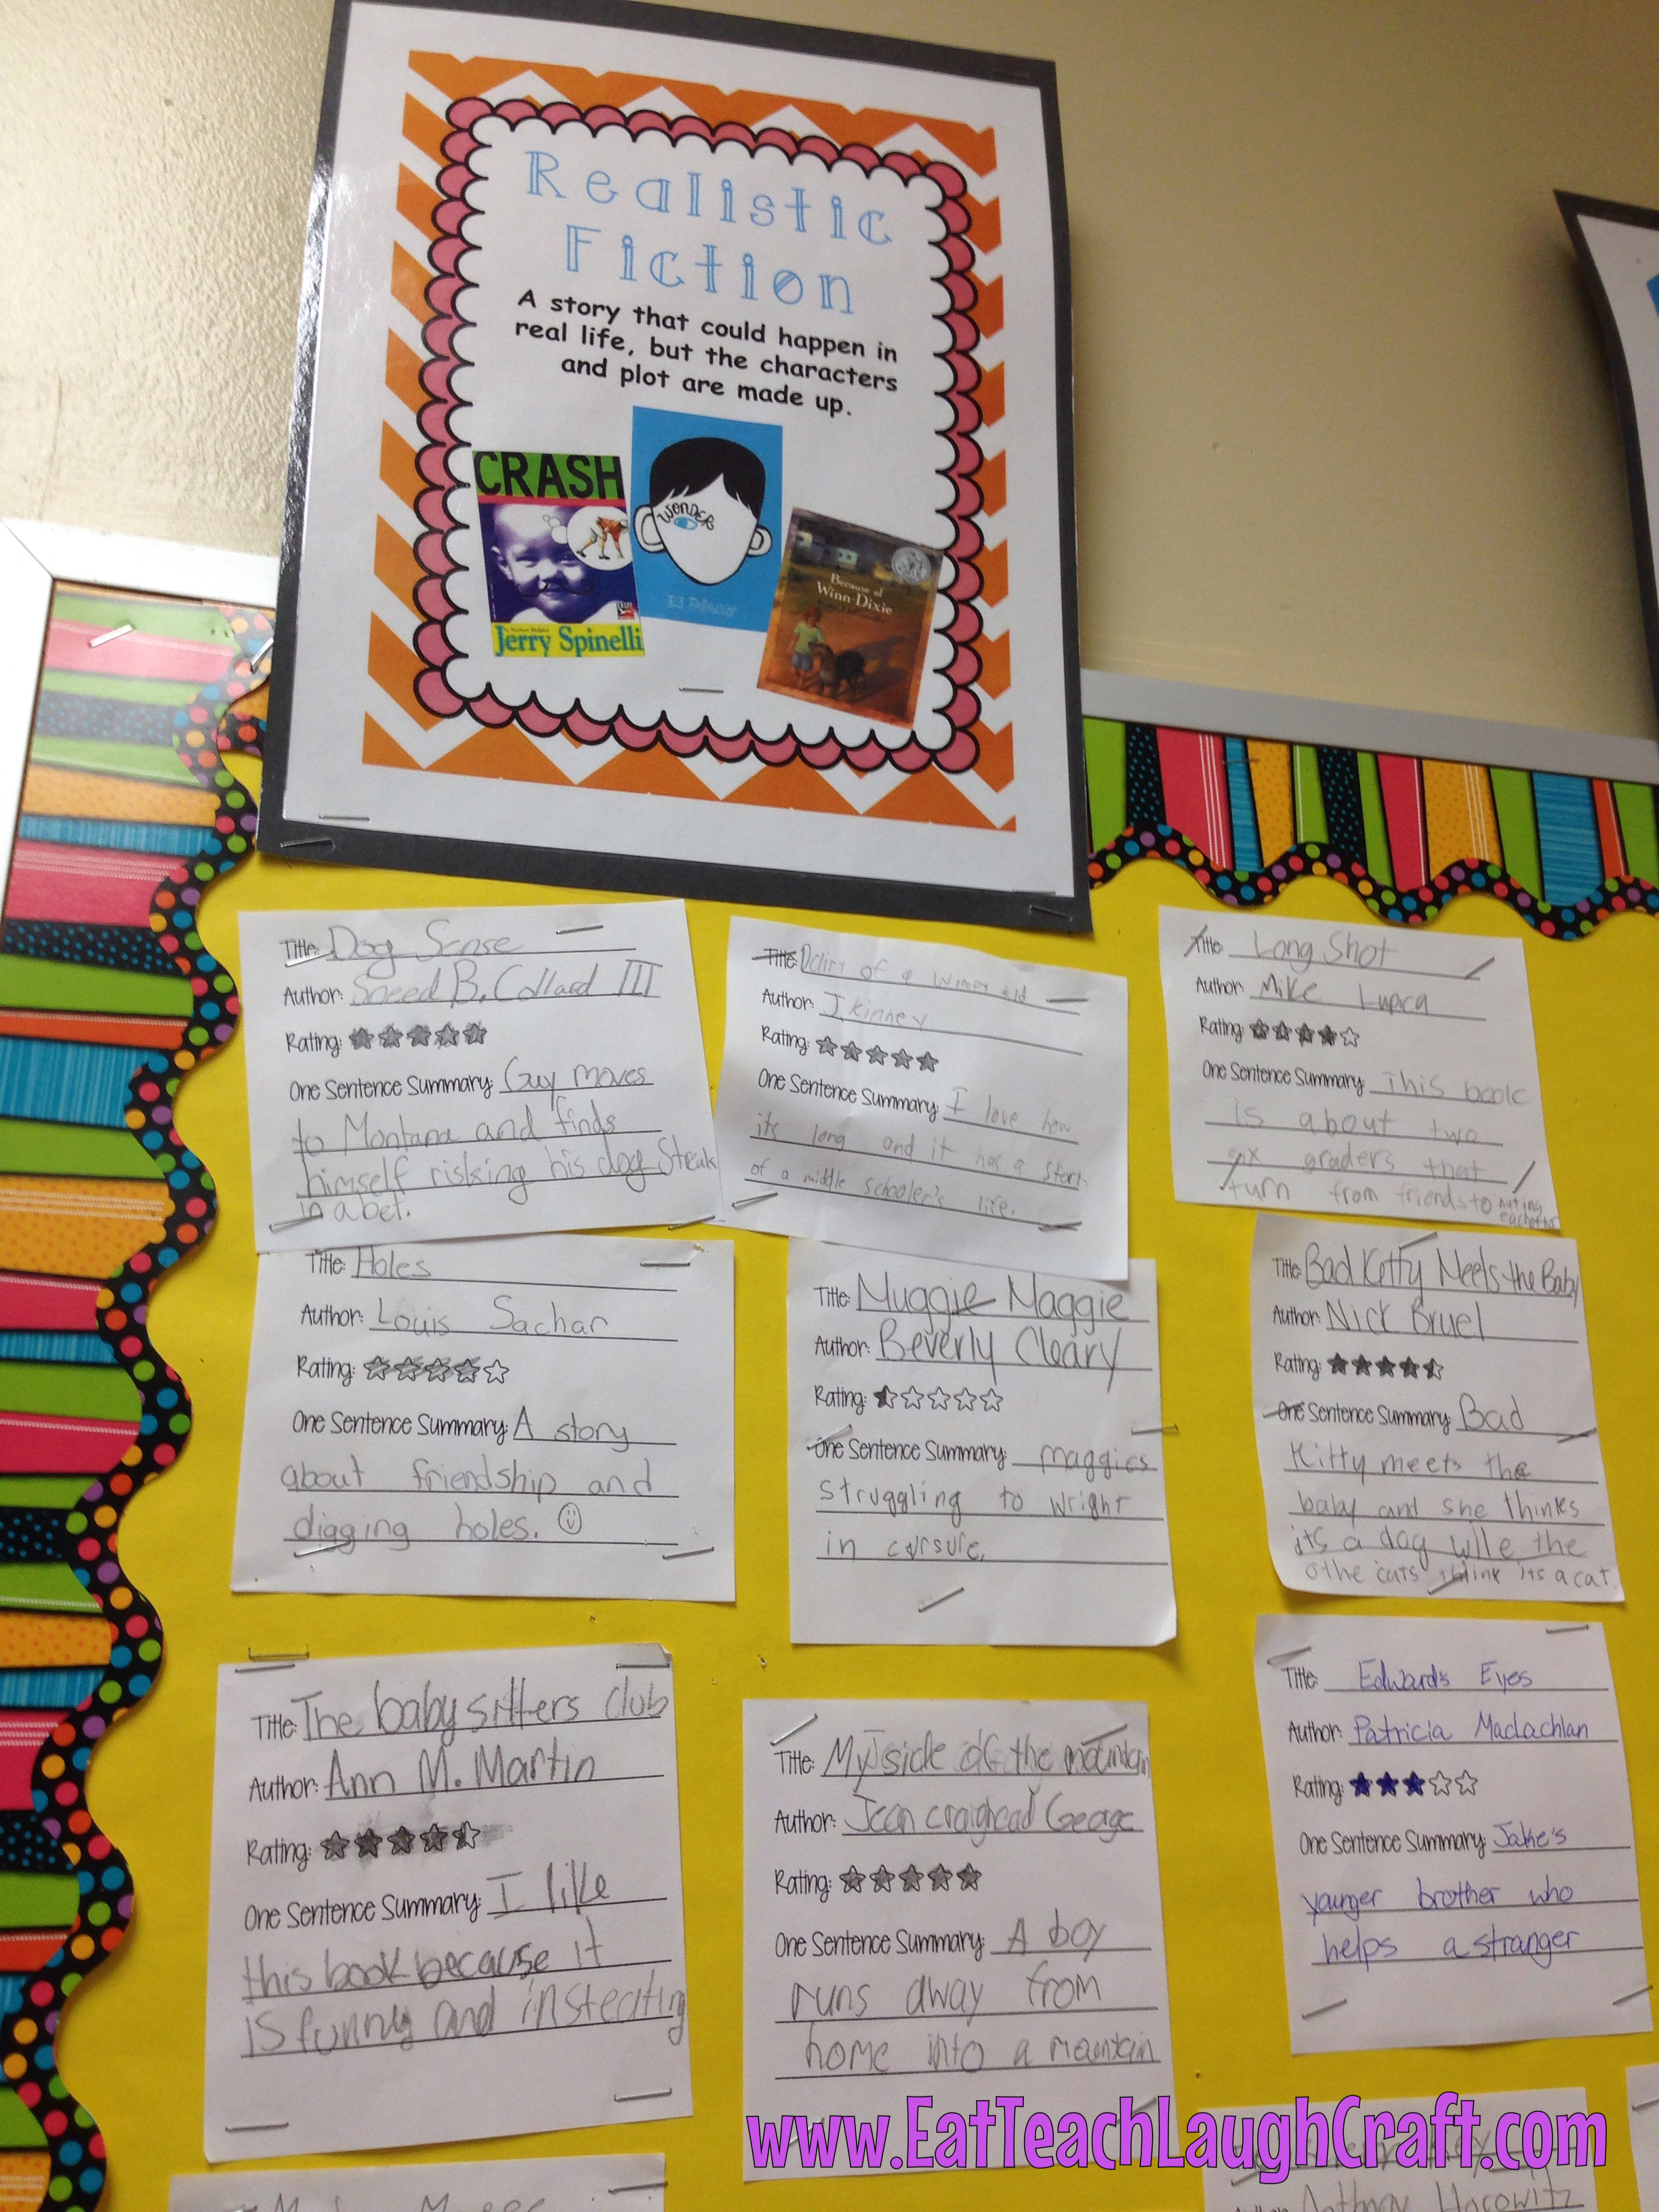 Realistic
Fiction
A story that could happen in
real life, but the characters
and plot are made up.
CRASH
Jerry Spinelli
WONDER
Because of
Winn-Dixie
Title: Dog Sense
Author: Sneed B. Collard III
Rating:
One Sentence Summary: Guy moves
to Montana and finds
himself risking his dog Streak
in a bet.
Title: Ddiry of a wimpy kid
Author: J kinney
Rating:
One Sentence Summary: I love how
its long and it has a story
of a middle schooler's life.
Title: Long Shot
Author: Mike Lupca
Rating:
One Sentence Summary: This book
is about two
six graders that
turn from friends to hating
eachother
Title: Holes
Author: Louis Sachar
Rating:
One Sentence Summary: A story
about friendship and
digging holes. ☺
Title: Muggie Maggie
Author: Beverly Cleary
Rating:
One Sentence Summary: maggies
struggling to wright
in cursure.
Title: Bad Kitty Meets the Baby
Author: Nick Bruel
Rating:
One Sentence Summary: Bad
Kitty meets the
baby and she thinks
it's a dog wile the
othe cats think its a cat.
Title: The babysitters club
Author: Ann M. Martin
Rating:
One Sentence Summary: I like
this book because it
is funny and insteating
Title: My side of the mountain
Author: Jean craighead George
Rating:
One Sentence Summary: A boy
runs away from
home into a mountain
Title: Edward's Eyes
Author: Patricia Maclachlan
Rating:
One Sentence Summary: Jake's
younger brother who
helps a stranger
www.EatTeachLaughCraft.com
Anthony Horowitz